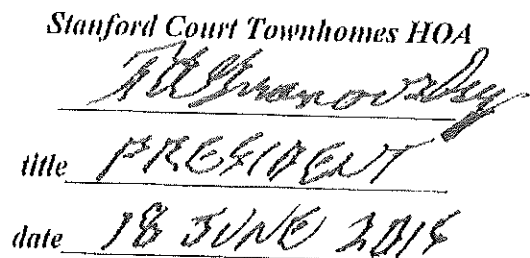 Stanford Court Townhomes HOA
title PRESIDENT
date 18 JUNE